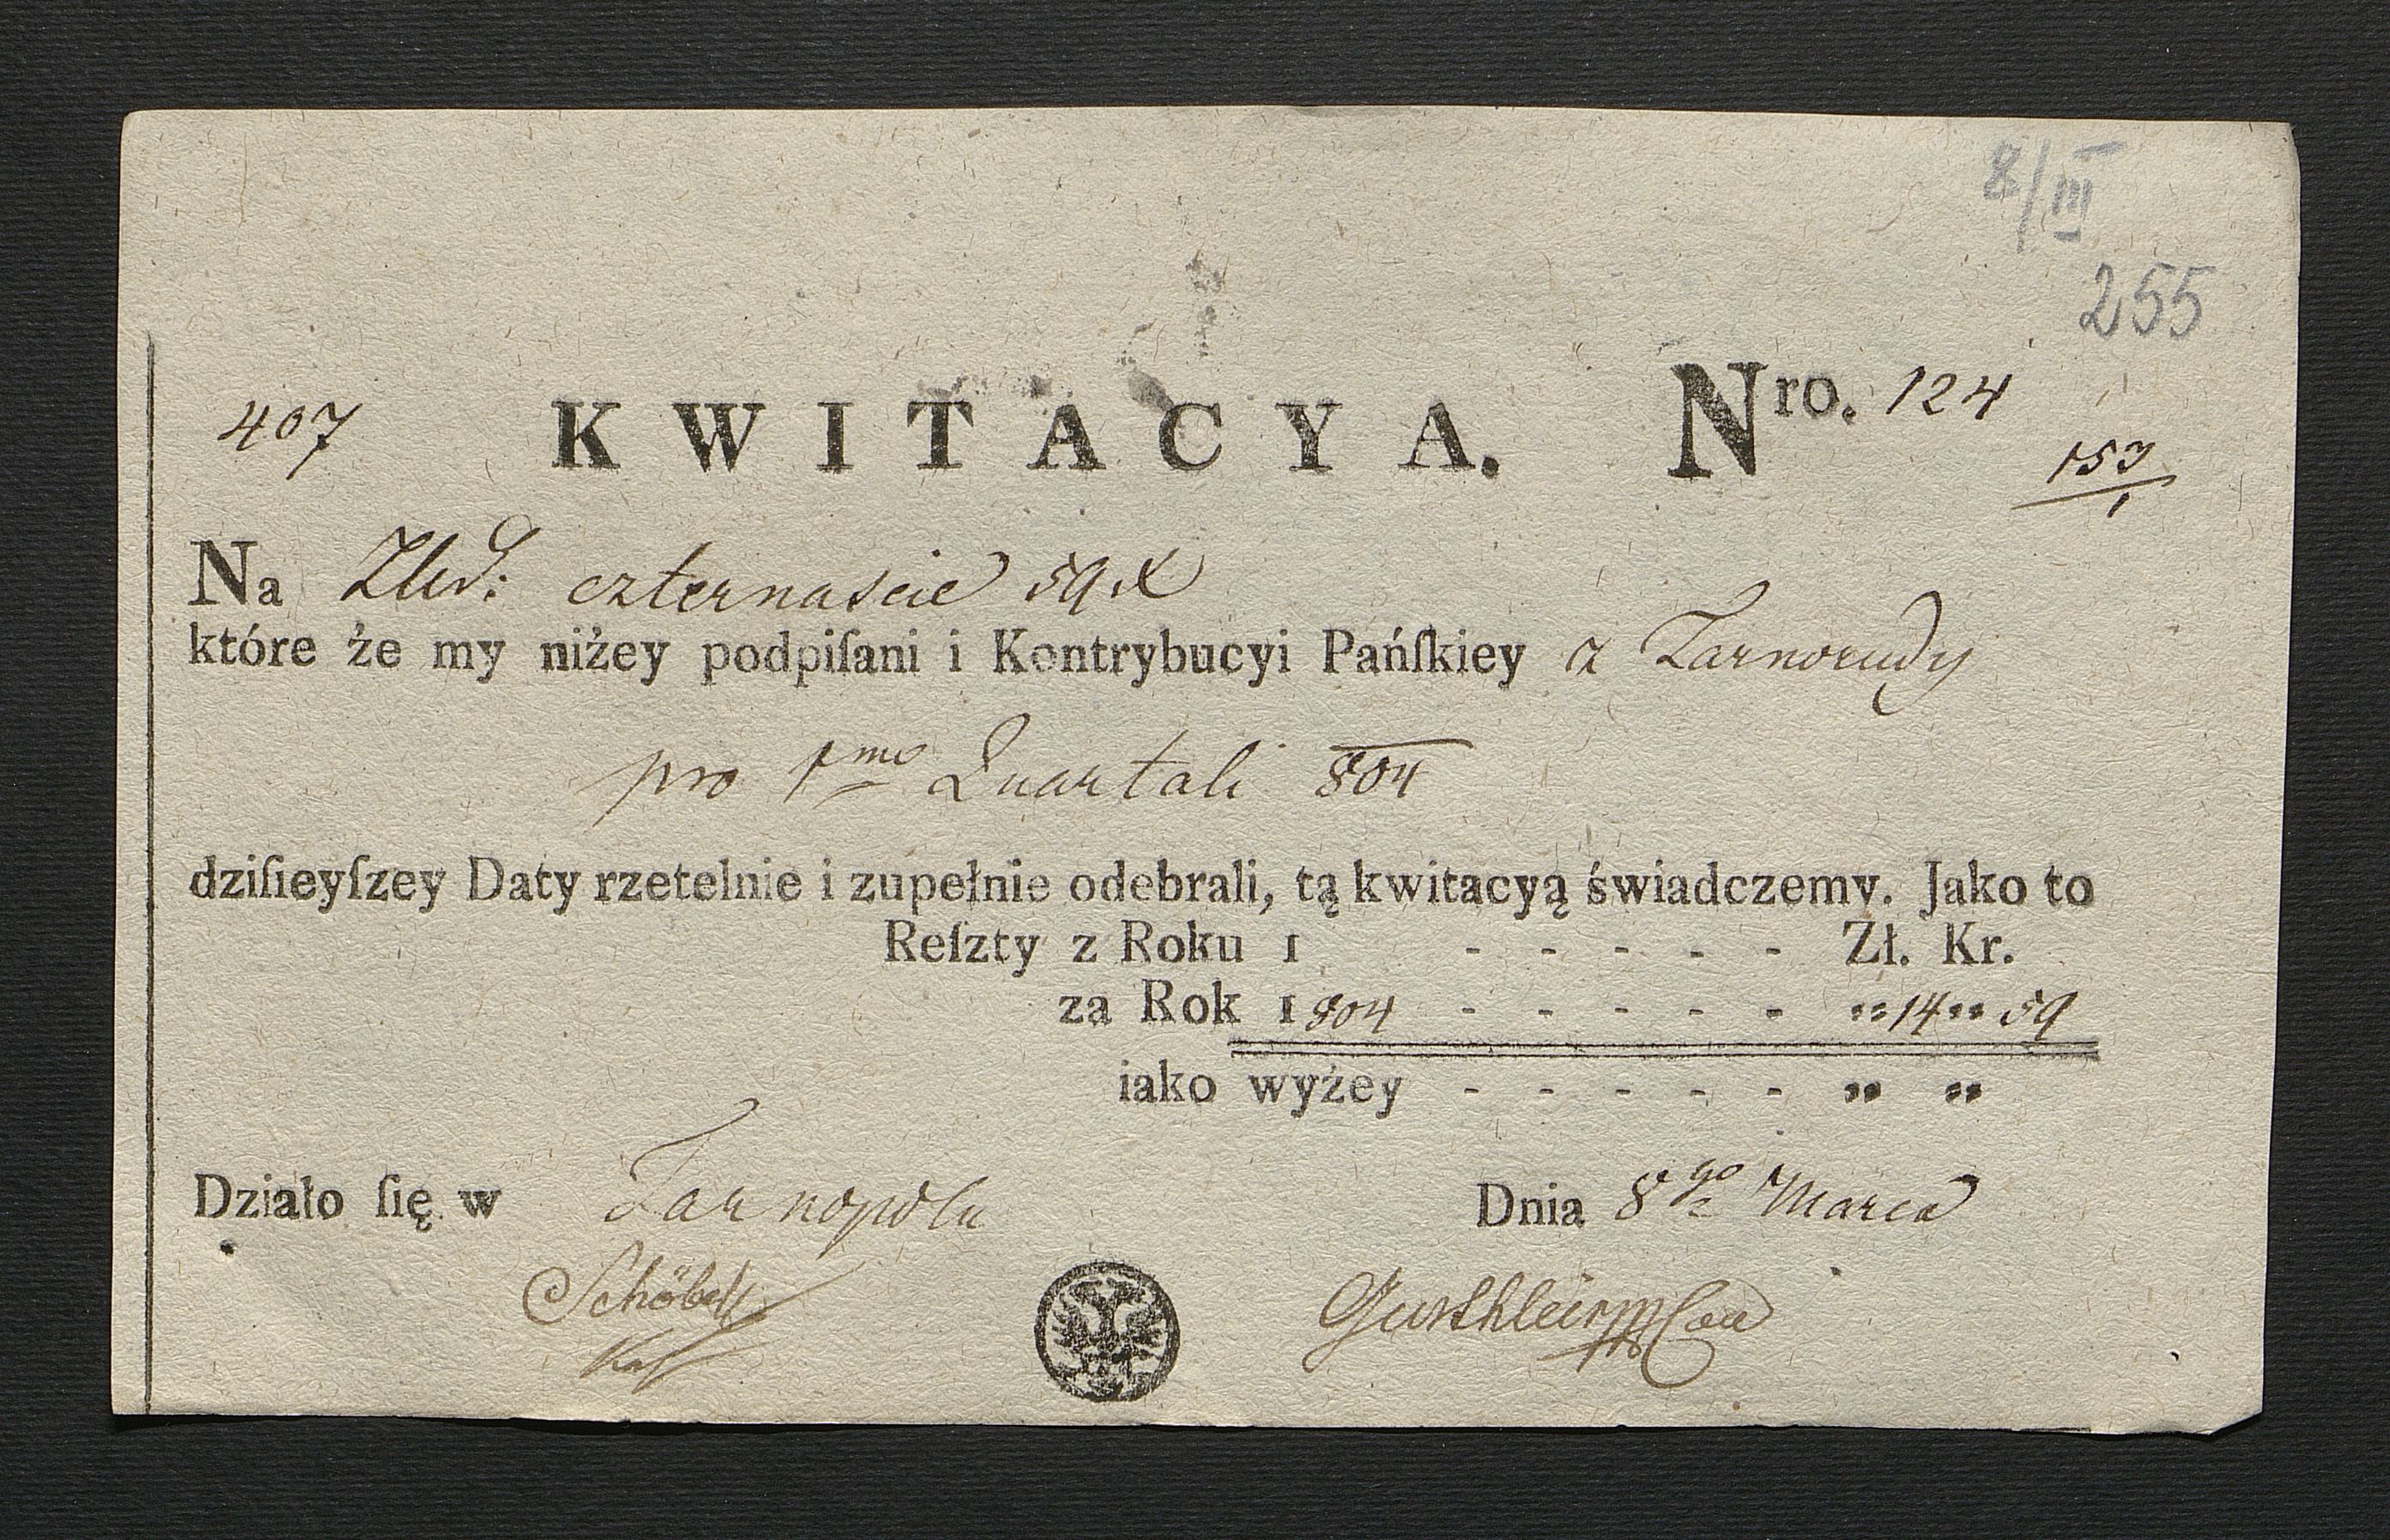 8/III
255
407 KWITACYA. Nro. 124
153
1
Na Złr: czternaście 59 X
które że my niżey podpiſani i Kontrybucyi Pańſkiey z Tarnorudy
pro 1mo Quartali 804
dziſieyſzey Daty rzetelnie i zupełnie odebrali, tą kwitacyą świadczemy. Jako to
Reſzty z Roku 1 - - - - - Zł. Kr.
za Rok 1804 - - - - - „ 14 „ 59
iako wyżey - - - - - „ „
Działo ſię w Tarnopolu Dnia 8go Marca
Schöbel